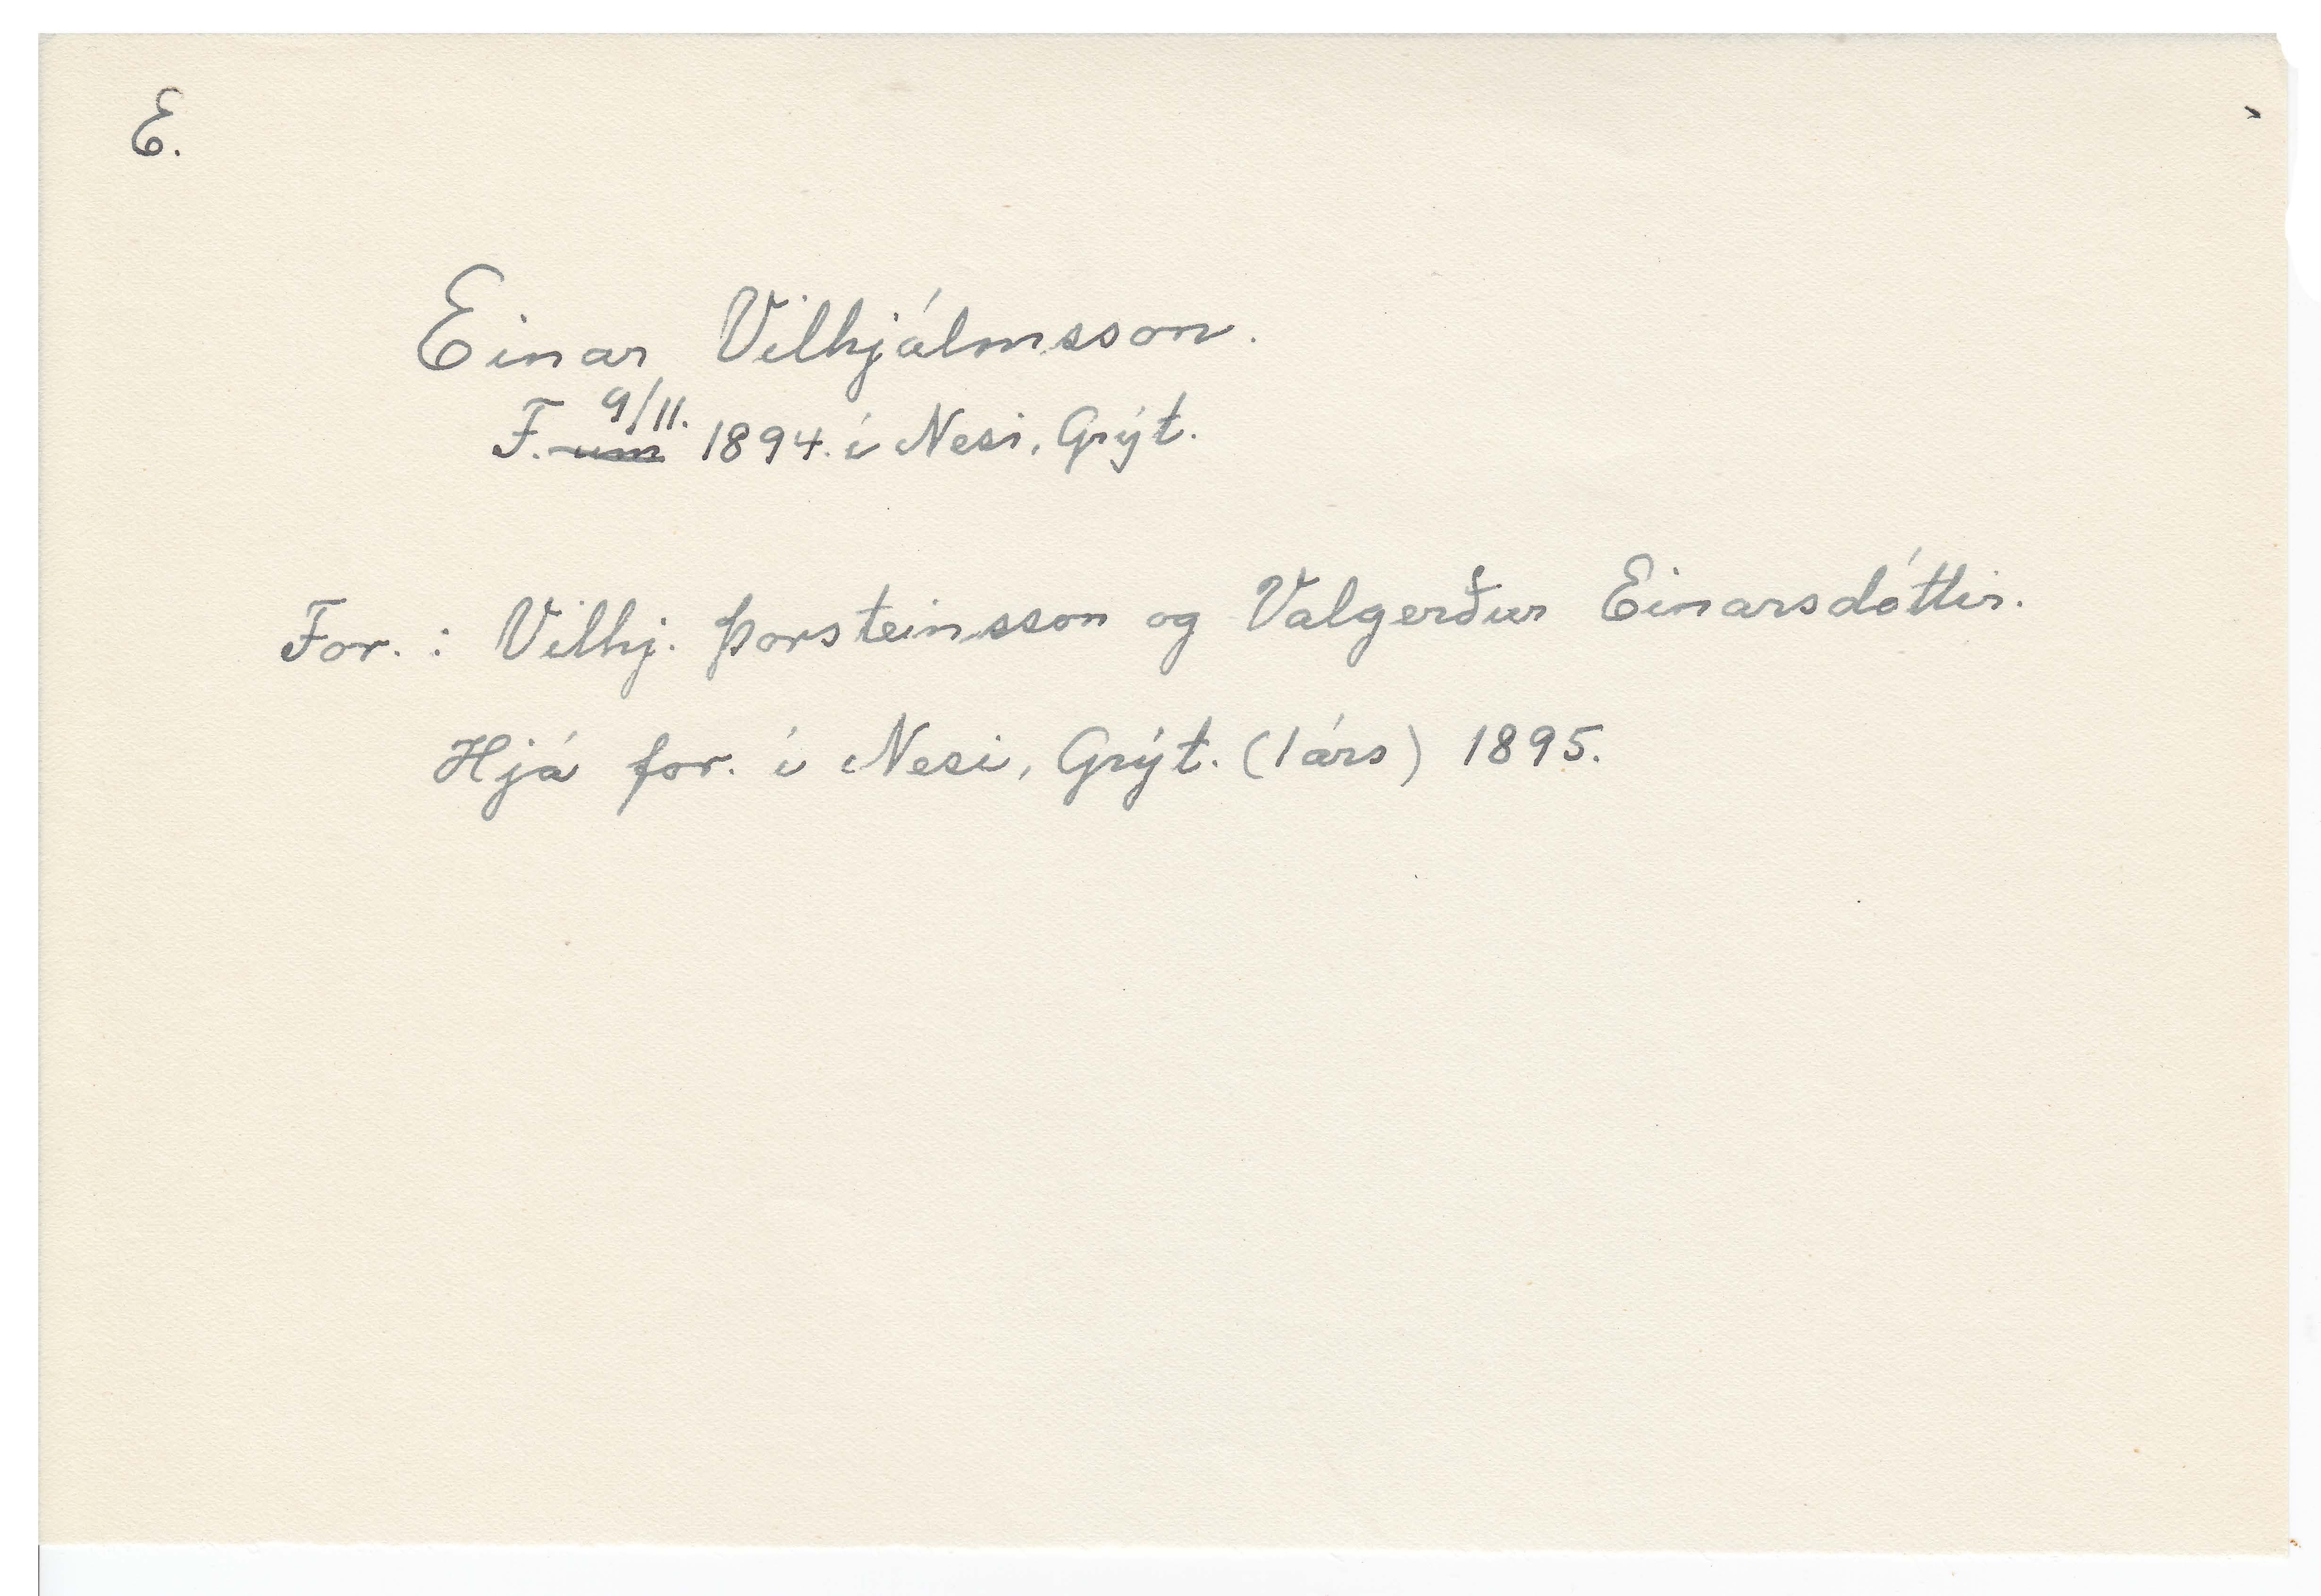 E.
Einar Vilhjálmsson.
F. um 9/11. 1894. í Nesi, Grýt.
For. : Vilhj. Þorsteinsson og Valgerður Einarsdóttir.
Hjá for. í Nesi, Grýt. (1 árs) 1895.